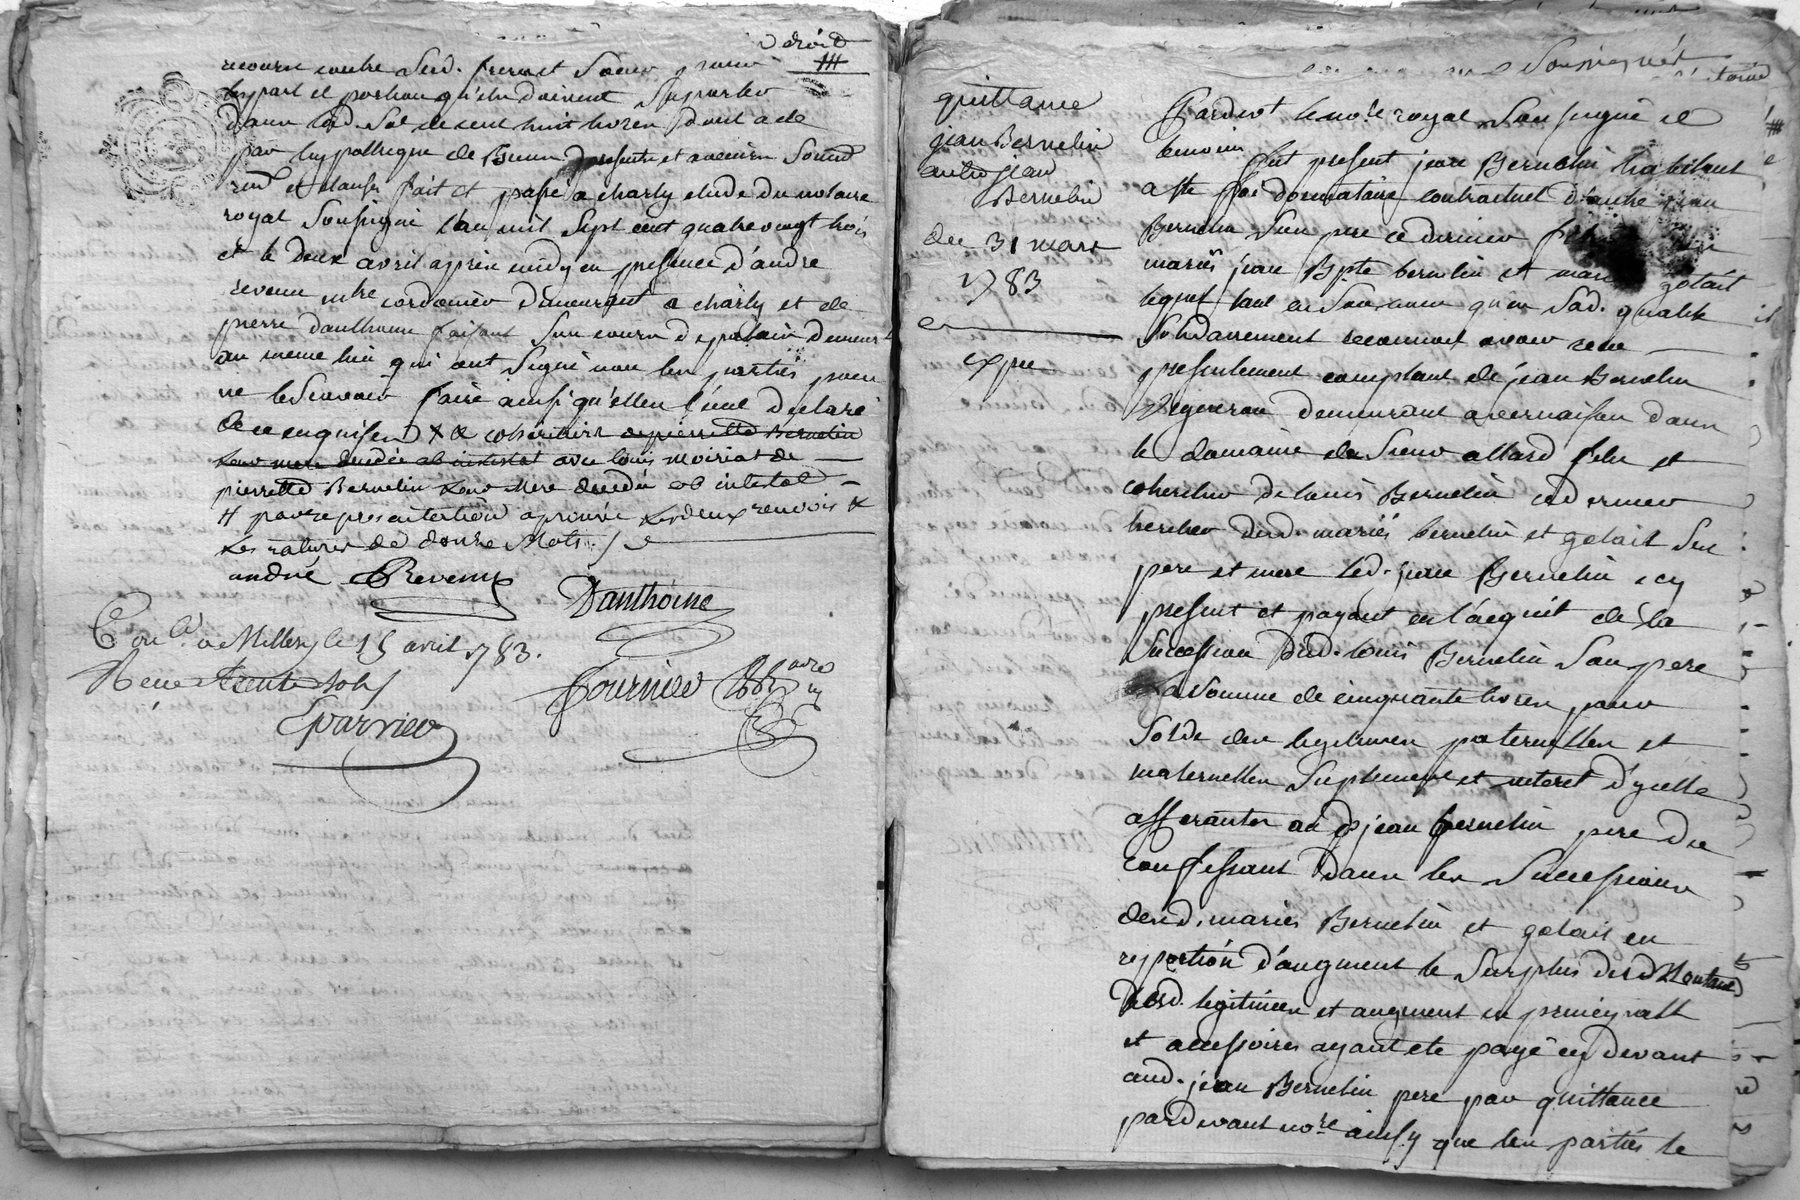 droit
recours contre Sesd. freres et Soeur pour
les part et portion qu'elles doivent Suporter
dans lad. Som de cent huit livres dont acte
par hypotheque de Biens presents et avenir Soum
rend et clauses fait et passé a charly etude du notaire
royal Soussigné l'an mil Sept cent quatre vingt trois
et le Deux avril apprès midy en presence d'andré
revenu mtre cordonnier demeurant a charly et de
pierre danthoine faisant Son cours de demeurt
au meme lieu qui ont Signé non les parties pour
ne le Scavoir faire ainsi qu'elles l'ont declaré
de ce enquises & cohéritiers de pierrette Bernelin
leur mere decedée ab intestat avec louis moiriat de
pierrette Bernelin leur Mere decedée ab intestat
# par representation aprouvé les deux renvois &
les ratures de douze Mots ./.
andré Revenu
Danthoine
Con.lé a Millery le 15 avril 1783.
Reçu trente sols
Fournier
Parnier
quittance
jean Bernelin
autre jean
Bernelin
du 31 mars
1783
expée
Soussignés
Pardevt le no.re royal Soussigné et
temoins fut present jean Bernelin habitant
a Ste foi donnataire contractuel d'autre jean
Bernelin Son pere ce dernier
mariés jean Bpte bernelin et marie golait
lequel tant en Son nom qu'en Sad. qualité
Solidairement reconnoit avoir receu
presentement comptant de jean Bernelin
Vigneron demeurant a vernaison dans
le domaine du Sieur allard fils et
coheritier de louis Bernelin ce dernier
heritier desd. mariés bernelin et golait Ses
pere et mere led. jean Bernelin icy
present et payant en l'acquit de la
Succession dud. louis Bernelin Son pere
la Somme de cinquante livres pour
Solde des legitimes paternelles et
maternelles Suplement et interet d'ycelle
afferantes aud. jean Bernelin pere du
confessant dans les Successions
desd. mariés Bernelin et golait en
reportion d'augment le Surplus dud Montant
desd. legitimes et augment en principall
et accessoires ayant eté payé cy devant
aud. jean Bernelin pere par quittance
pardevant no.re ainsy que les parties le